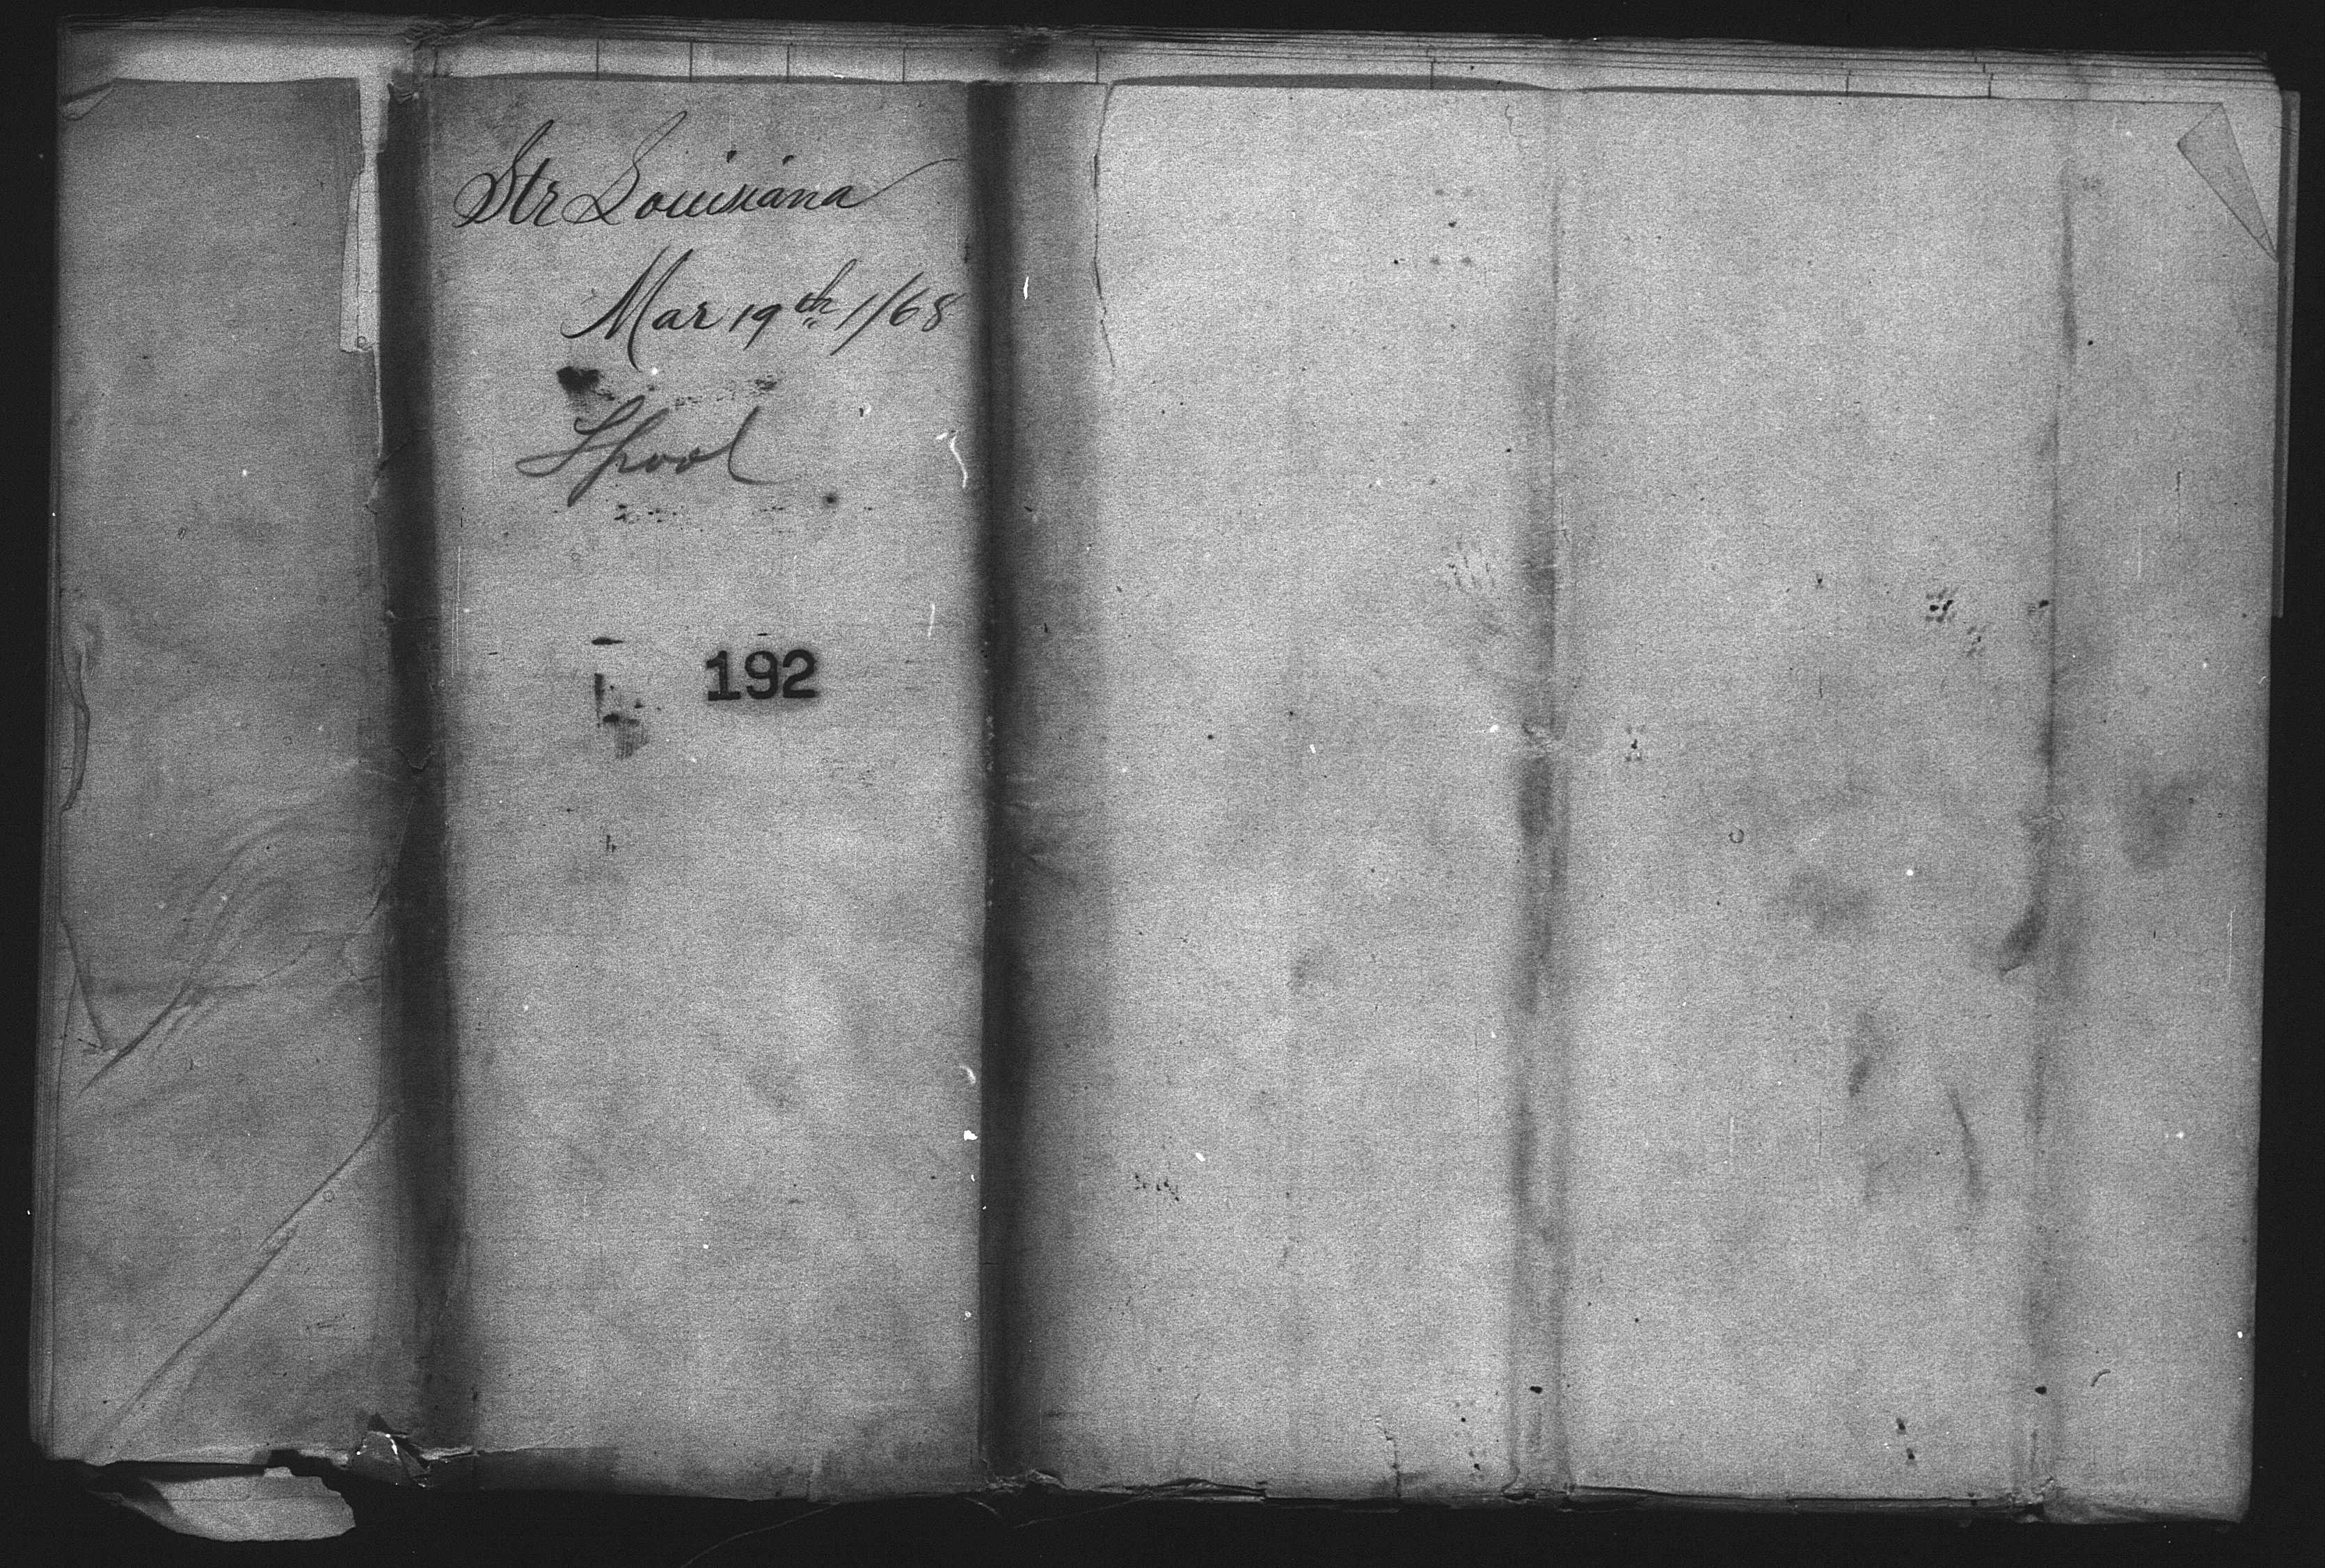 Str Louisiana
Mar 19th 1/68
Lpool
192